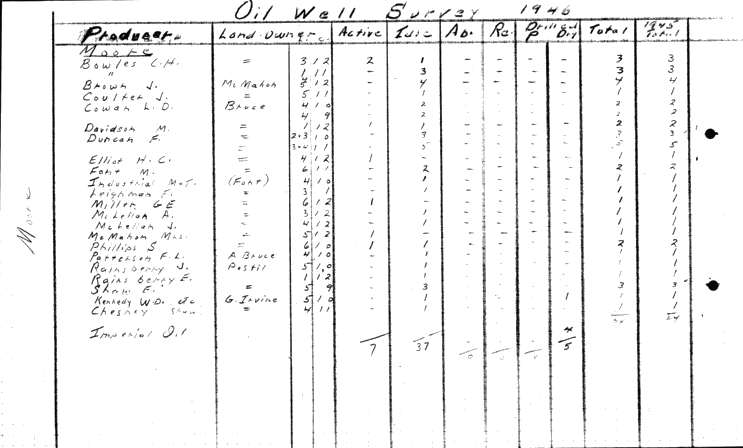 Oil Well Survey 1946
Producer Land-Owner Active Idle Ab. Re. Drilled P Dry Total 1945 Total
Moore
Bowles C.H. " 3 12 2 1 - - - - 3 3
" 1 11 - 3 - - - - 3 3
Brown J. McMahon 5 12 - 4 - - - - 4 4
Coulter J. " 5 11 - 1 - - - - 1 1
Cowan L.D. Bruce 4 10 - 2 - - - - 2 2
4 9 - 2 - - - - 2 2
Davidson M. " 1 12 1 1 - - - - 2 2
Duncan F. " 2+3 10 - 3 - - - - 3 3
" 3+4 11 - 5 - - - - 5 5
Elliot H.C. " 4 12 1 - - - - - 1 1
Font M. " 6 11 - 2 - - - - 2 2
Industrial M.T. (Font) 4 10 - 1 - - - - 1 1
Leighman F. " 3 1 - 1 - - - - 1 1
Miller G E " 6 12 1 - - - - - 1 1
McLellan A. " 3 12 - 1 - - - - 1 1
McLellan J. " 4 12 - 1 - - - - 1 1
McMahon Mrs. " 5 12 1 - - - - 1 1
Phillips S " 6 10 1 1 - - - - 2 2
Patterson F.L. A Bruce 4 10 - 1 - - - - 1 1
Rainsberry J. Postil 5 10 - 1 - - - - 1 1
Rainsberry E. 1 12 - 1 - - - - 1 1
Shaw E. " 5 9 - 3 - - - - 3 3
Kennedy W.D. G. Irvine 5 10 - 1 - - - 1 1 1
Chesney " 4 11 - 1 - - - - 1 1
Imperial Oil 4
7 37 0 0 0 5
Moore